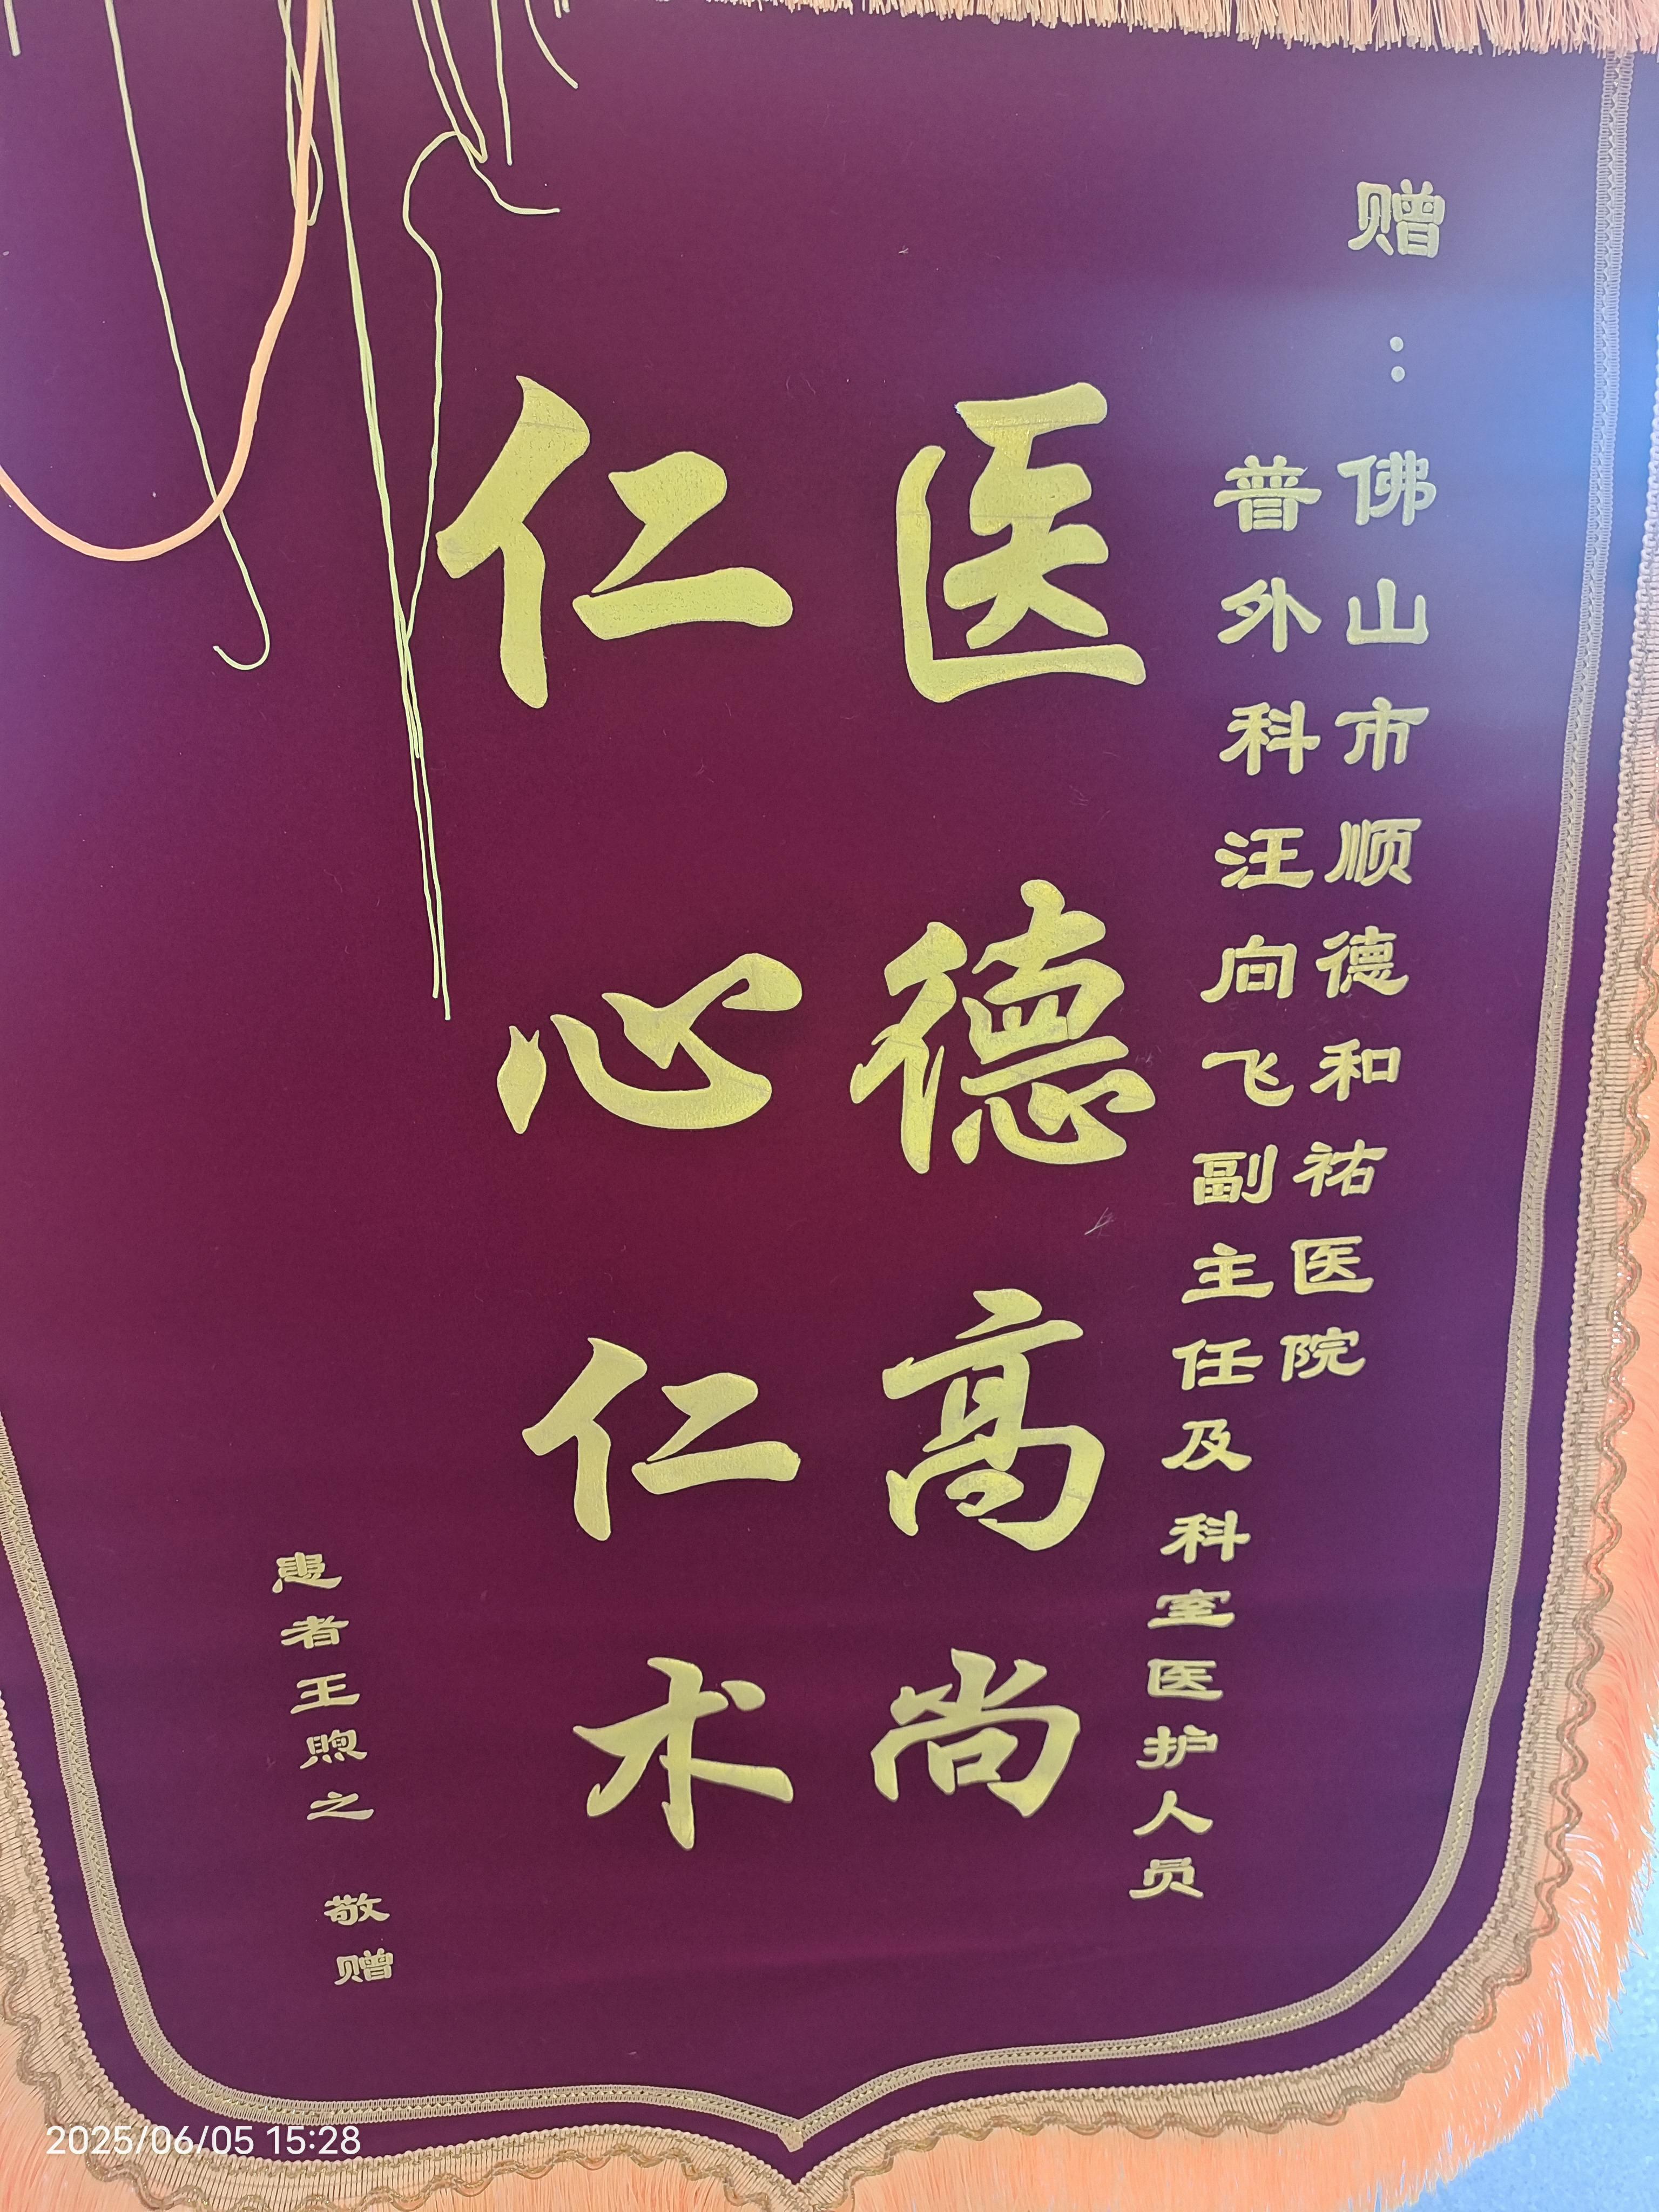 赠：佛山市顺德和祐医院
普外科汪向飞副主任及科室医护人员
医德高尚
仁心仁术
患者王煦之 敬赠
2025/06/05 15:28